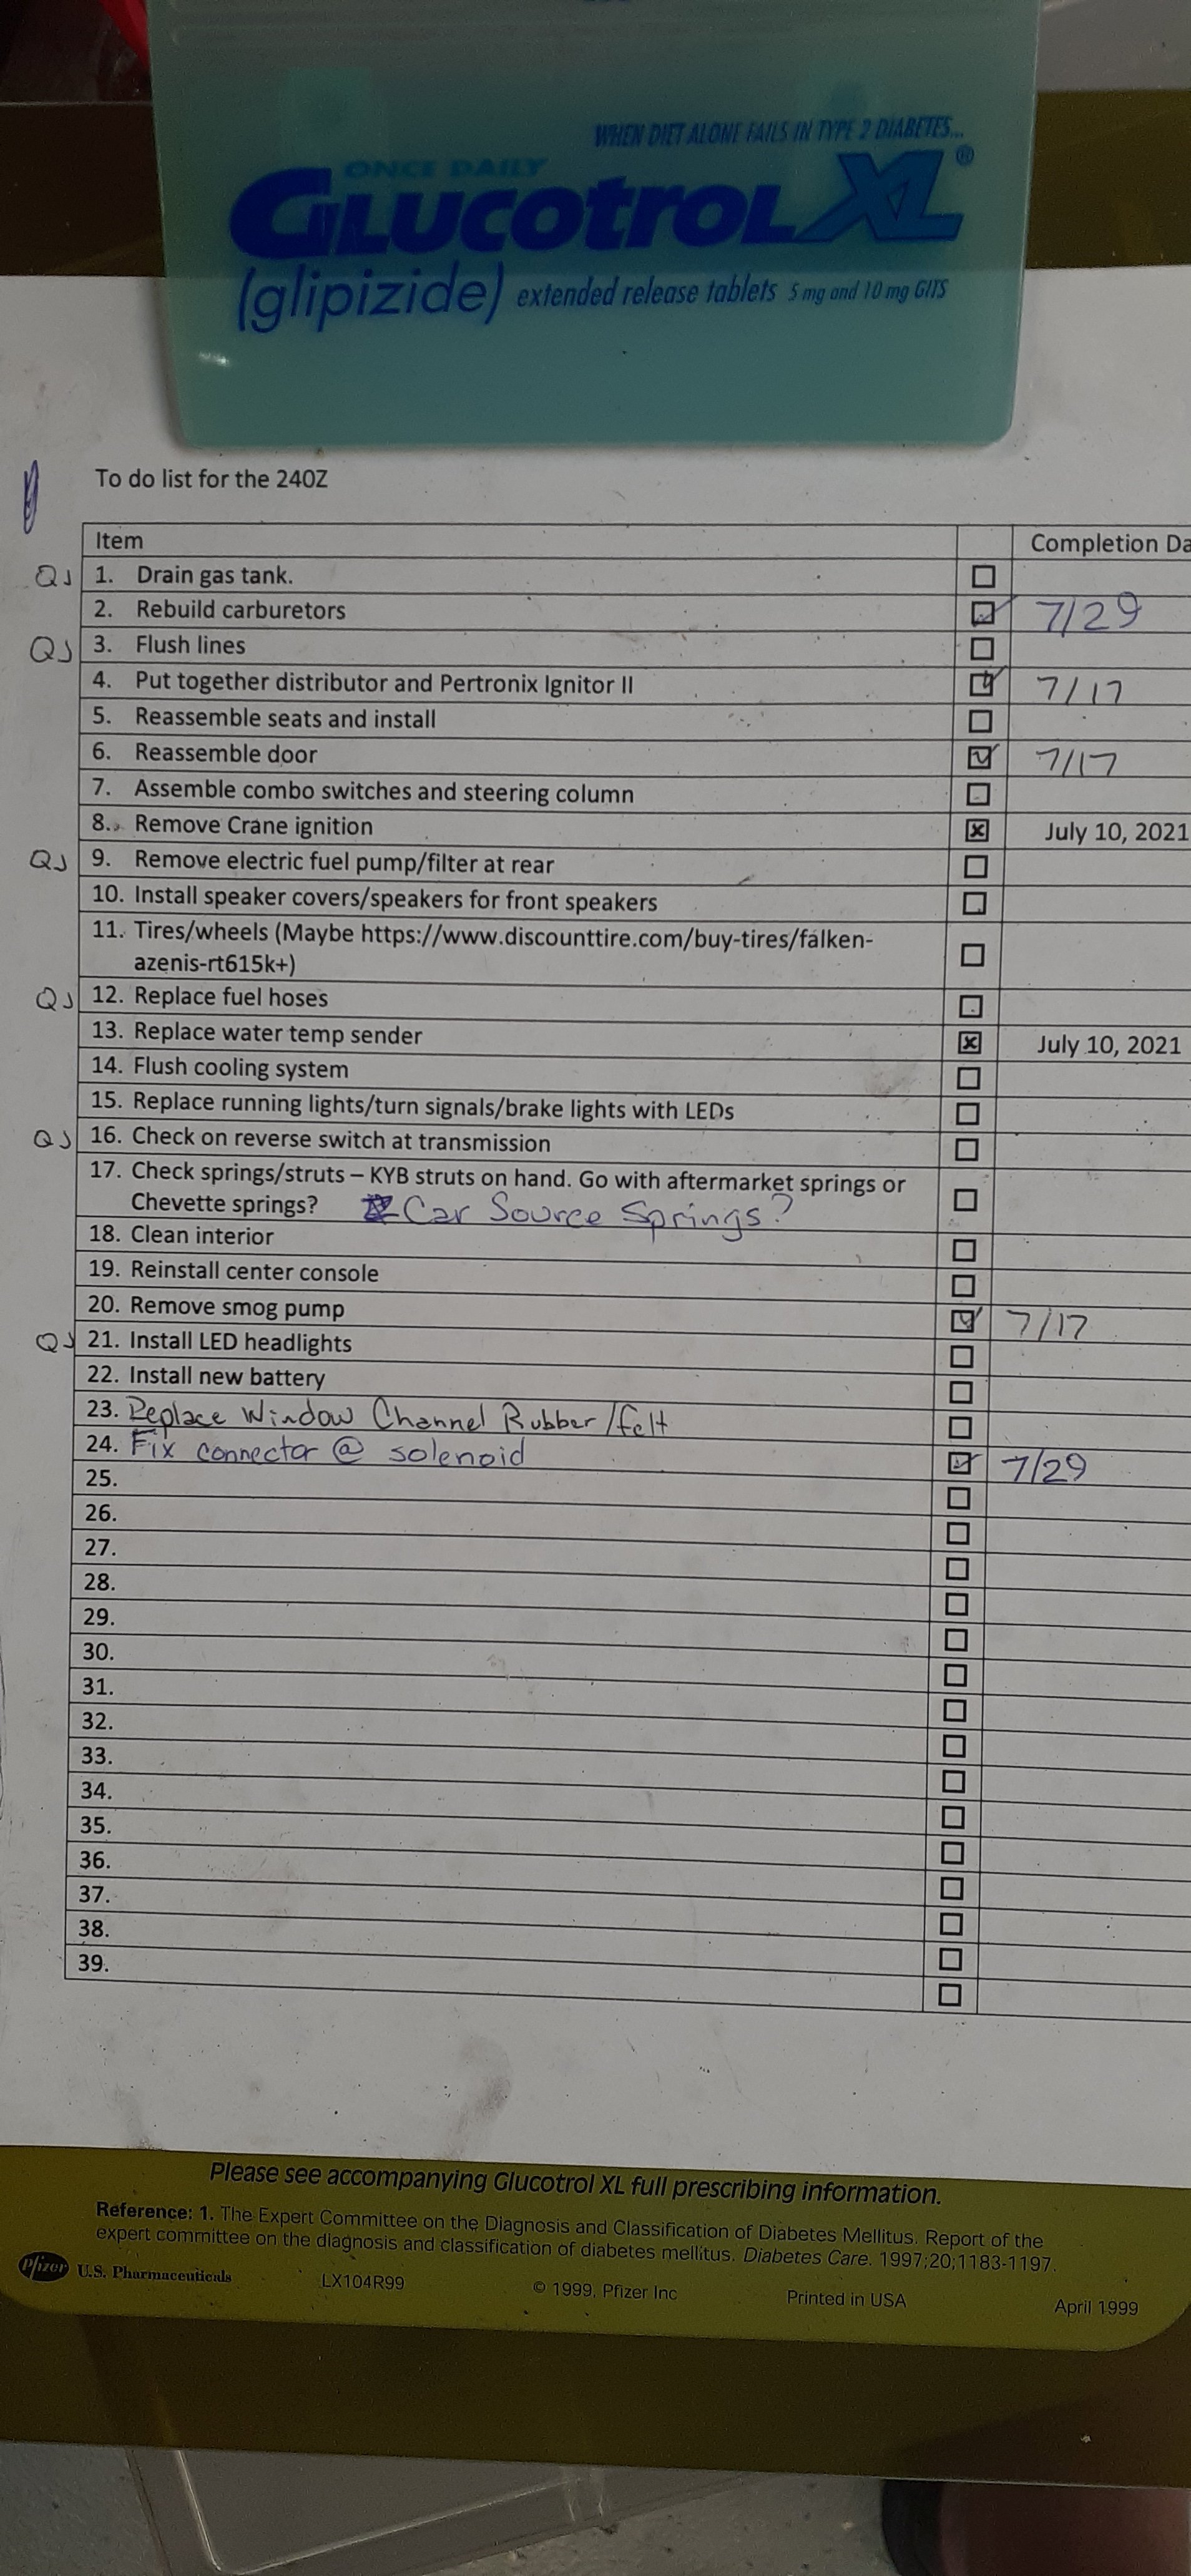 WHEN DIET ALONE FAILS IN TYPE 2 DIABETES...
ONCE DAILY
GLUCOTROL XL®
(glipizide) extended release tablets 5 mg and 10 mg GITS
To do list for the 240Z
Item Completion Da
QJ 1. Drain gas tank. ☐
2. Rebuild carburetors ☑ 7/29
QJ 3. Flush lines ☐
4. Put together distributor and Pertronix Ignitor II ☑ 7/17
5. Reassemble seats and install ☐
6. Reassemble door ☑ 7/17
7. Assemble combo switches and steering column ☐
8. Remove Crane ignition ☒ July 10, 2021
QJ 9. Remove electric fuel pump/filter at rear ☐
10. Install speaker covers/speakers for front speakers ☐
11. Tires/wheels (Maybe https://www.discounttire.com/buy-tires/falken-
azenis-rt615k+) ☐
QJ 12. Replace fuel hoses ☐
13. Replace water temp sender ☒ July 10, 2021
14. Flush cooling system ☐
15. Replace running lights/turn signals/brake lights with LEDs ☐
QJ 16. Check on reverse switch at transmission ☐
17. Check springs/struts – KYB struts on hand. Go with aftermarket springs or
Chevette springs? Car Source Springs? ☐
18. Clean interior ☐
19. Reinstall center console ☐
20. Remove smog pump ☑ 7/17
QJ 21. Install LED headlights ☐
22. Install new battery ☐
23. Replace Window Channel Rubber/felt ☐
24. Fix connector @ solenoid ☑ 7/29
25. ☐
26. ☐
27. ☐
28. ☐
29. ☐
30. ☐
31. ☐
32. ☐
33. ☐
34. ☐
35. ☐
36. ☐
37. ☐
38. ☐
39. ☐
Please see accompanying Glucotrol XL full prescribing information.
Reference: 1. The Expert Committee on the Diagnosis and Classification of Diabetes Mellitus. Report of the
expert committee on the diagnosis and classification of diabetes mellitus. Diabetes Care. 1997;20;1183-1197.
Pfizer U.S. Pharmaceuticals LX104R99 © 1999, Pfizer Inc Printed in USA April 1999